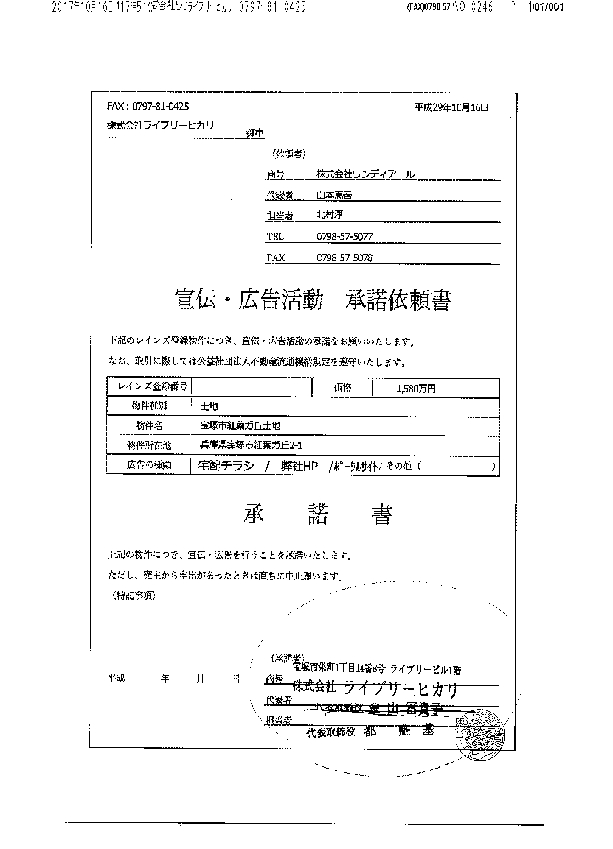 FAX:0797-81-0425
平成29年10月16日
株式会社ライブリーヒカリ
御中
(依頼者)
商号 株式会社レンディアール
代表者
担当者 北村淳
TEL 0798-57-5077
FAX 0798-57-5078
宣伝・広告活動 承諾依頼書
下記のレインズ登録物件につき、宣伝・広告活動の承諾をお願いいたします。
なお、取引に際しては公益社団法人不動産流通機構規定を遵守いたします。
レインズ登録番号 価格 1,580万円
物件種別 土地
物件名 宝塚市紅葉ガ丘土地
物件所在地 兵庫県宝塚市紅葉ガ丘2-1
広告の種類 宅配チラシ / 弊社HP /ポータルサイト/その他( )
承 諾 書
上記の物件につき、宣伝・広告を行うことを承諾いたします。
ただし、売主から申出があったときは直ちに中止願います。
(特記事項)
(承諾者)
宝塚市栄町1丁目14番8号 ライブリービル1階
平成 年 月 日
商号 株式会社 ライブリーヒカリ
代表者
担当者
代表取締役